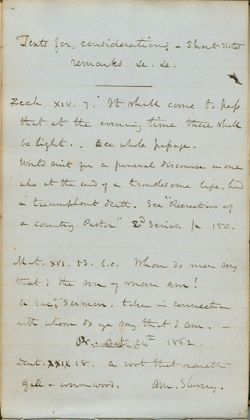 Texts for consideration, - Short Notes
remarks &c. &c.
Zech XIV. 7. It shall come to pass
that at the evening time there shall
be light. . See whole passage.
Would suit for a funeral discourse in one
who at the end of a troublesome life, had
a triumphant death. See "Recreations of
a country Parson" 2d Series. p 150.
Mat. XVI. 13. &c. Whom do men say
that I the son of man am?
Sermon. taken in connection
with whom do ye say that I am. -
24th 1862.
Deut. XXIX 18. a root that beareth
gall - wormwood.